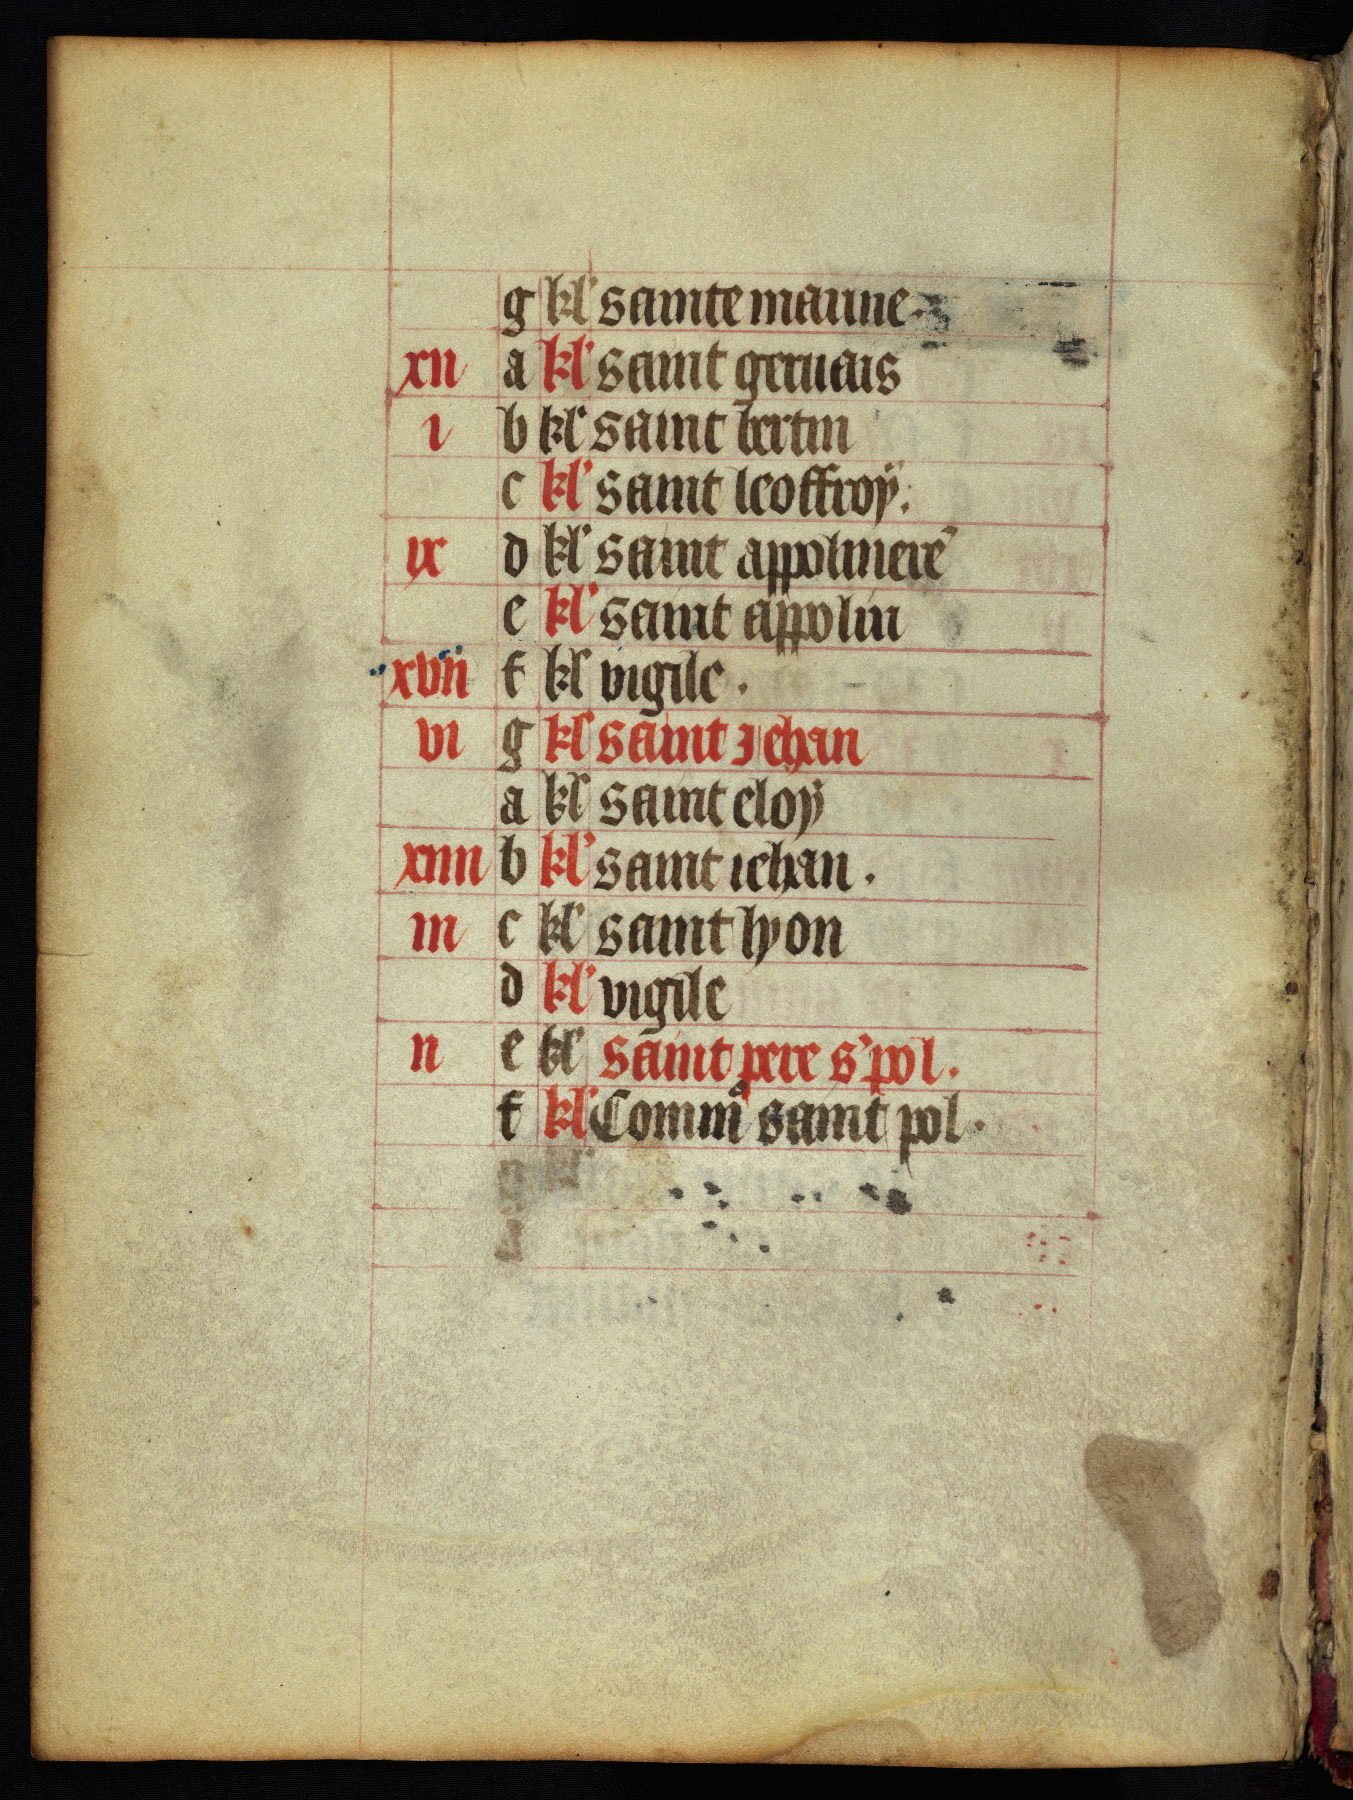 g kl' sainte marine.
xii a kl' saint geruais
i b kl' saint bertin
c kl' saint leoffroÿ.
ix d kl' saint appolinere'
e kl' saint appolin
xvii f kl vigile.
vi g kl saint iehan
a kl saint eloÿ
xiiii b kl' saint iehan.
iii c kl' saint lyon
d kl' vigile
ii e kl' saint pere s' pol.
f kl' Comm saint pol.